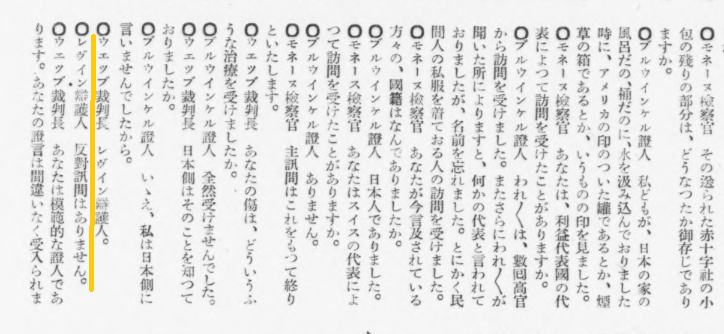 ○モネーヌ檢察官　その送られた赤十字社の小
包の殘りの部分は、どうなつたか御存じであり
ますか。
○ブルウインケル證人　私どもが、日本の家の
風呂だの、桶だのに、水を汲み込んでおりました
時に、アメリカの印のついた罐であるとか、煙
草の箱であるとか、いうものの印を見ました。
○モネーヌ檢察官　あなたは、利益代表國の代
表によつて訪問を受けたことがありますか。
○ブルウインケル證人　われ〳〵は、數囘高官
から訪問を受けました。またさらにわれ〳〵が
聞いた所によりますと、何かの代表と言われて
おりましたが、名前を忘れました。とにかく民
間人の私服を着ておる人の訪問を受けました。
○モネーヌ檢察官　あなたが今言及されている
方々の、國籍はなんでありましたか。
○ブルウインケル證人　日本人でありました。
○モネーヌ檢察官　あなたはスイスの代表によ
つて訪問を受けたことがありますか。
○ブルウインケル證人　ありません。
○モネーヌ檢察官　主訊問はこれをもつて終り
といたします。
○ウエツブ裁判長　あなたの傷は、どういうふ
うな治療を受けましたか。
○ブルウインケル證人　全然受けませんでした。
○ウエツブ裁判長　日本側はそのことを知つて
おりましたか。
○ブルウインケル證人　いゝえ、私は日本側に
言いませんでしたから。
○ウエツブ裁判長　レヴイン辯護人。
○レヴイン辯護人　反對訊問はありません。
○ウエツブ裁判長　あなたは模範的な證人であ
ります。あなたの證言は間違いなく受入られま